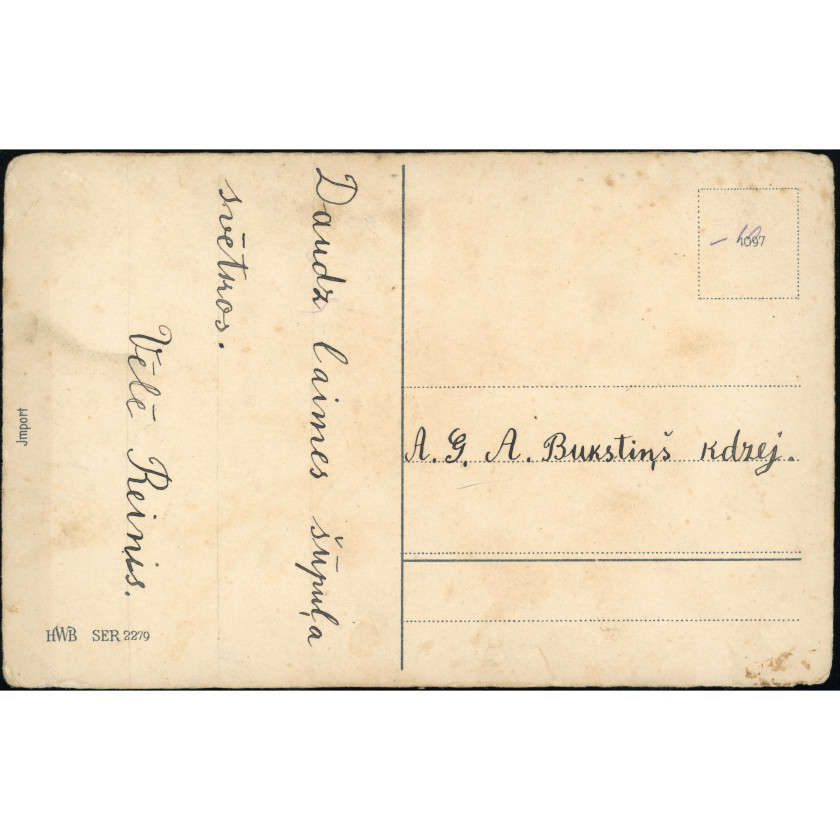 Daudz laimes šūpuļa
svētkos.
Vēlē Reinis.
A. G. A. Bukstiņš kdzej.
1097
Jmport
HWB SER 2279